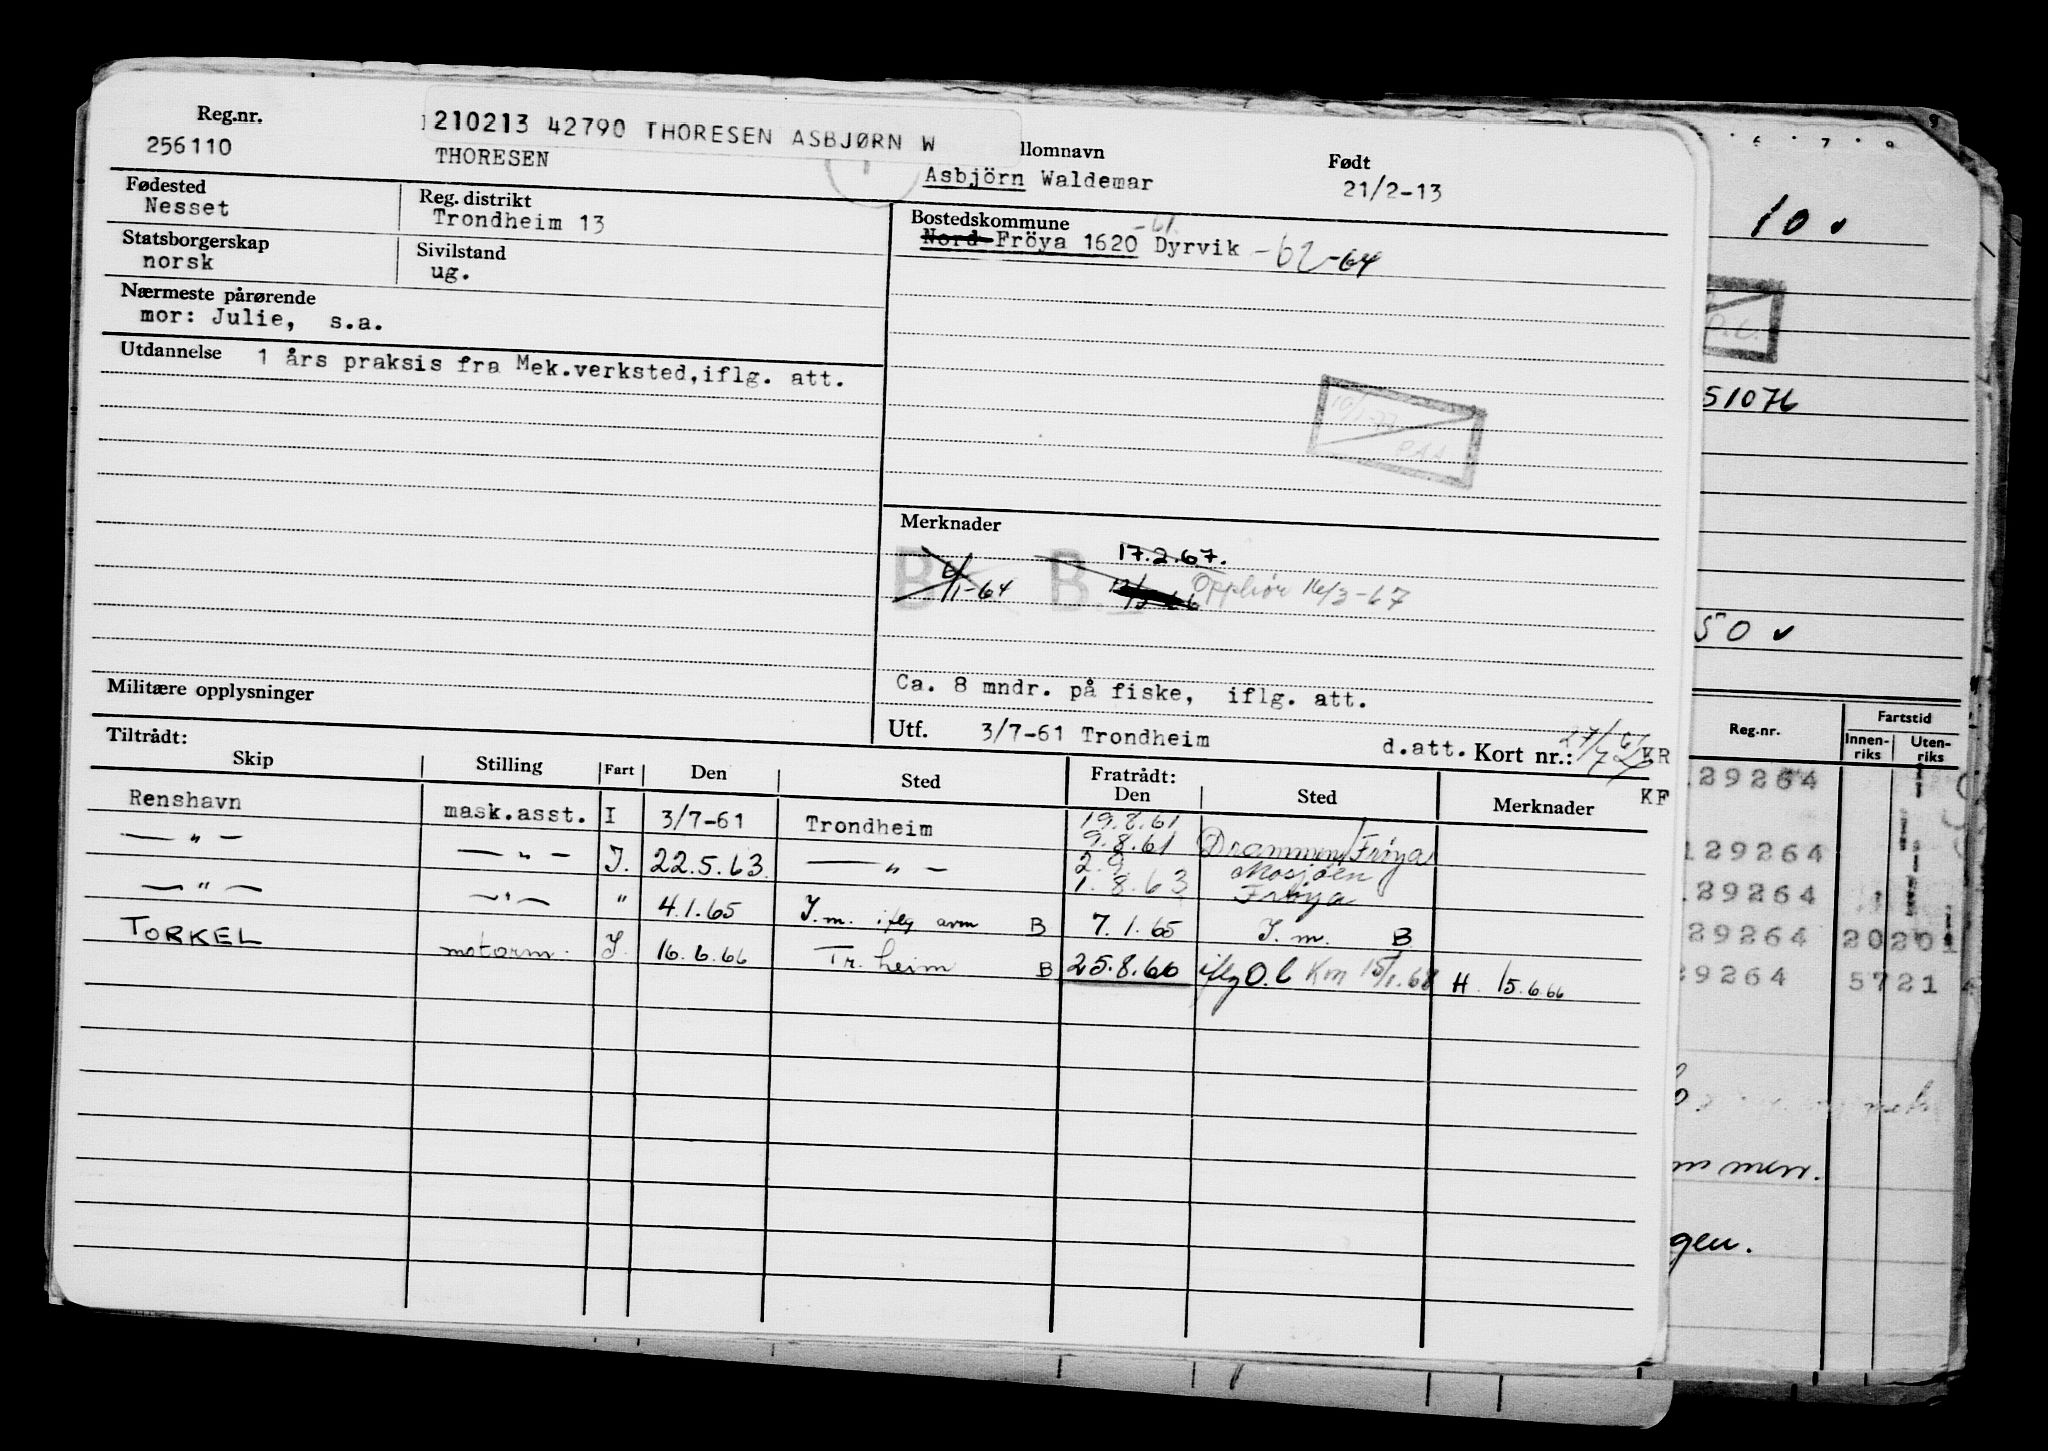 Reg.nr.
256110
210213 42790 THORESEN ASBJØRN W
THORESEN
llomnavn
Asbjörn Waldemar
Født
21/2-13
Fødested
Nesset
Reg. distrikt
Trondheim 13
Statsborgerskap
norsk
Sivilstand
ug.
Bostedskommune
-61
Nord-Fröya 1620 Dyrvik -62-64
Nærmeste pårørende
mor: Julie, s.a.
Utdannelse 1 års praksis fra Mek.verksted, iflg. att.
Merknader
B 6/1-64 B 17.2.67.
Opphör 16/3-67
Ca. 8 mndr. på fiske, iflg. att.
Militære opplysninger
Utf. 3/7-61 Trondheim d.att. Kort nr.: KR
KF
Tiltrådt:
Skip Stilling Fart Den Sted
Fratrådt:
Den Sted Merknader
Renshavn mask.asst. I 3/7-61 Trondheim 19.8.61
9.8.61 Drammen/Frøya
— " — — " — I. 22.5.63. — " — 2.9 Mosjøen
1.8.63 Frøya
— " — — " — " 4.1.65 I.m. iflg avm B 7.1.65 I.m. B
TORKEL motorm. I. 16.6.66 Tr.heim B 25.8.66 iflg O.l Km 15/1.68 H. 15.6.66
10 v
51076
50 v
Reg.nr.
Fartstid
Innen-
riks
Uten-
riks
129264
129264
129264
29264 20201
29264 5721
mmen.
gen.